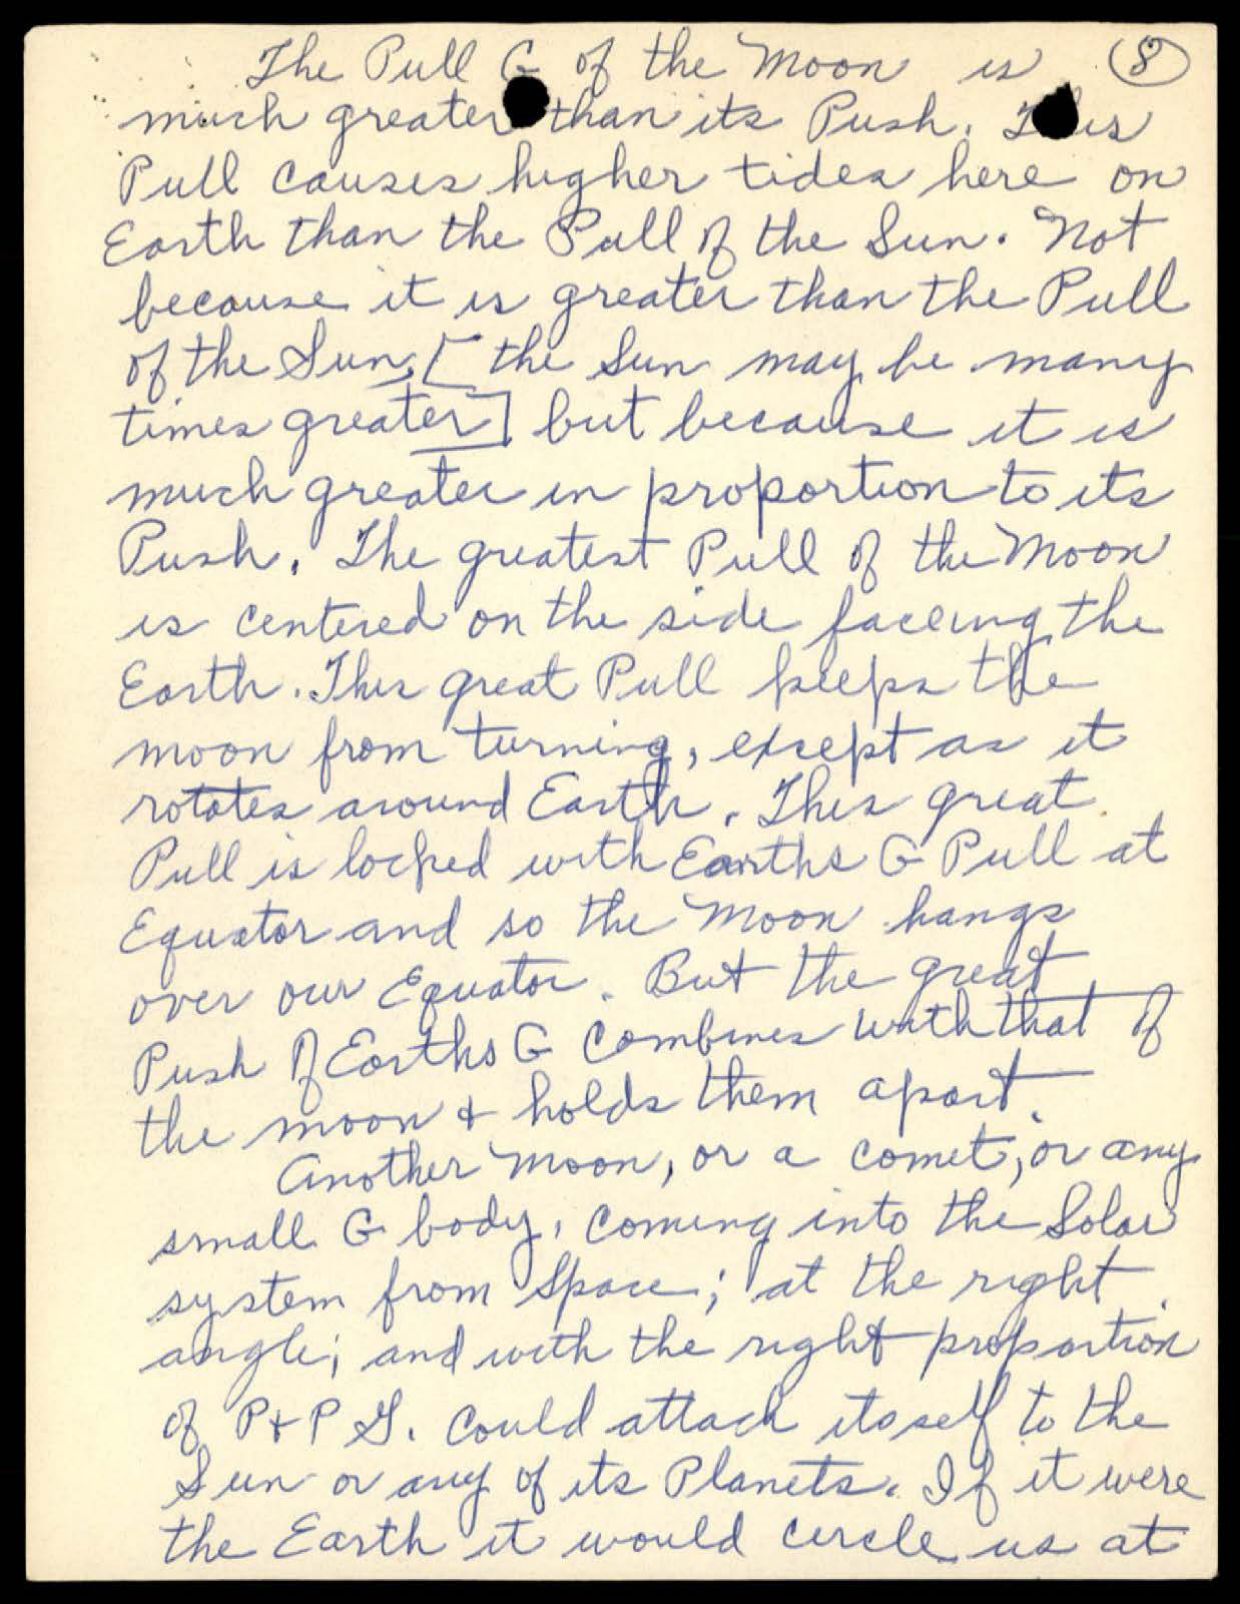 The Pull G of the Moon is (8)
much greater than its Push. This
Pull causes higher tides here on
Earth than the Pull of the Sun. Not
because it is greater than the Pull
of the Sun, [the Sun may be many
times greater] but because it is
much greater in proportion to its
Push. The greatest Pull of the Moon
is centered on the side faceing the
Earth. This great Pull keeps the
moon from turning, except as it
rotates around Earth. This great
Pull is locked with Earths G Pull at
Equator and so the Moon hangs
over our Equator. But the great
Push of Earths G combines with that of
the moon & holds them apart.
Another Moon, or a comet, or any
small G body, coming into the Solar
system from Space; at the right
angle; and with the right proportion
of P & P G. could attach itself to the
Sun or any of its Planets. If it were
the Earth it would circle us at